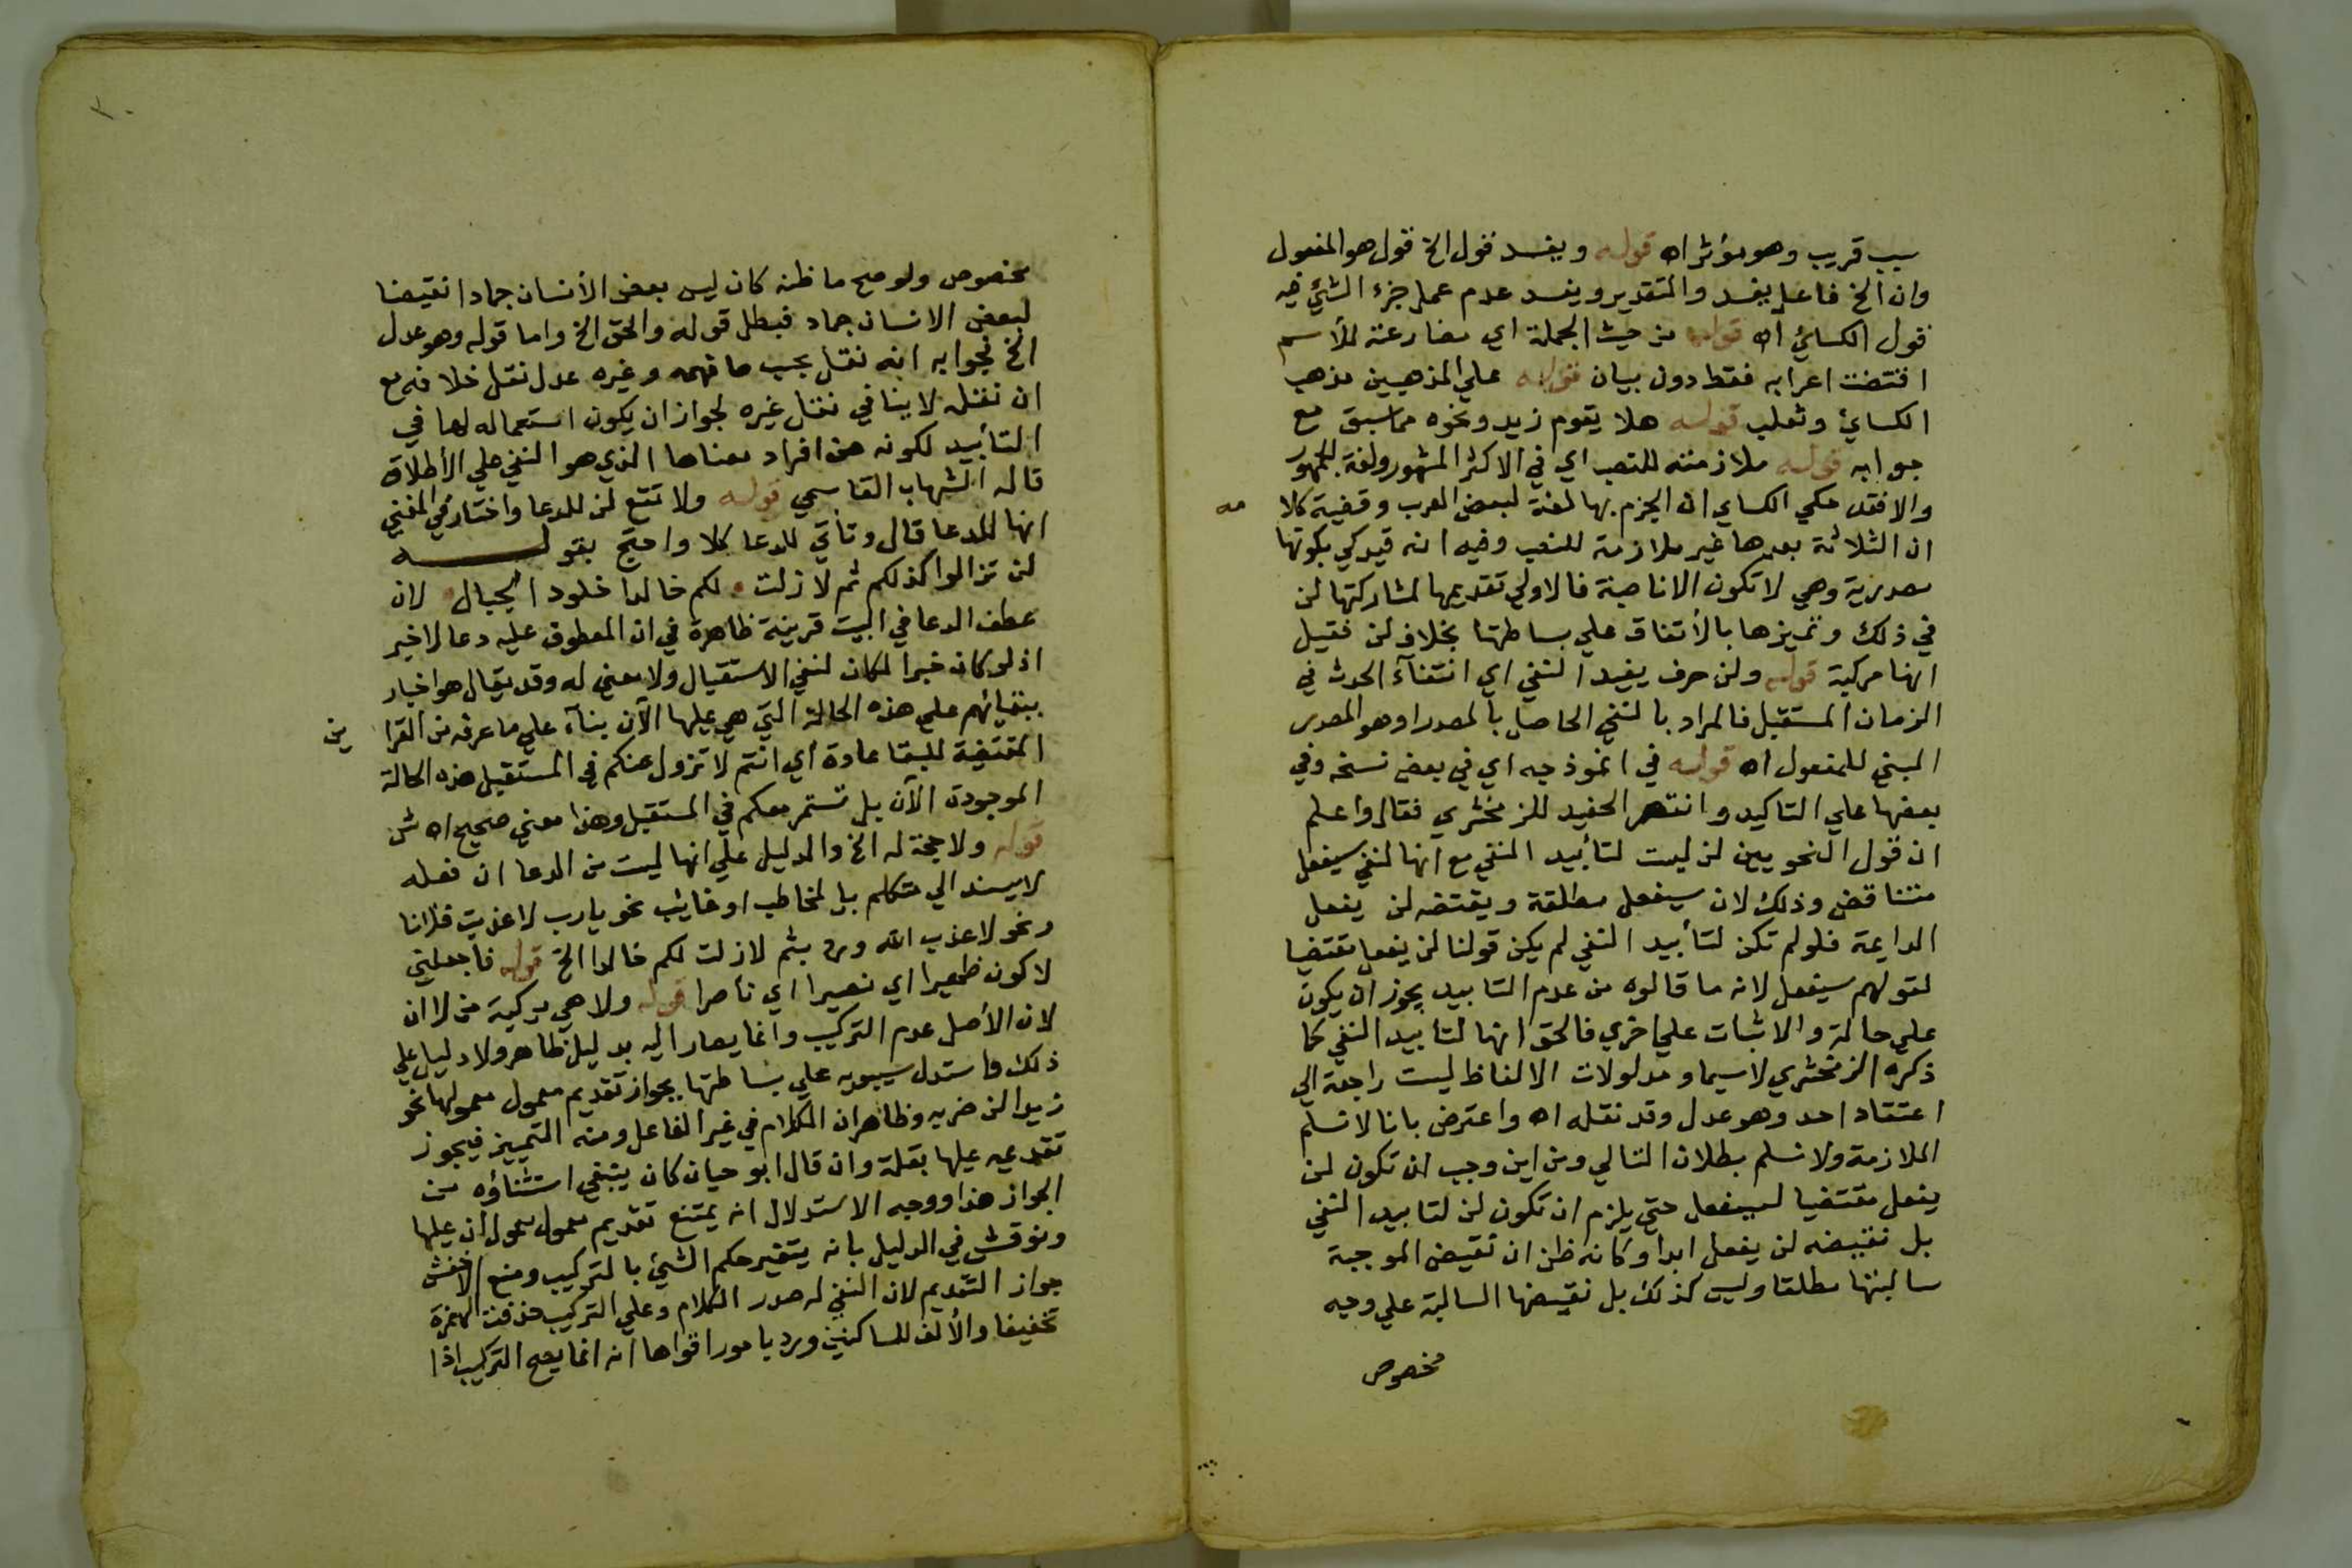 سبب قريب وهو مؤثر اه قوله ويفسد قول الخ قول هو المفعول
وان الخ فاعل يفسد والتقدير ويفسد عدم عمل جزء الشئ فيه
قول الكسائي اه قوله من حيث الجملة اي مضارعته للأسم
اقتضت اعرابه فقط دون بيان قوله علي المذهبين مذهب
الكسائي وثعلب قوله هلا يقوم زيد ونحوه مما سبق مع
جوابه قوله ملازمته للنصب اي في الاكثر المشهور ولغة الجمهور
والا فقد حكي الكساي ان الجزم بها لغة لبعض العرب وقضية كلامه
ان الثلاثة بعدها غير ملازمة للنصب وفيه انه قيد كي بكونها
مصدرية وهي لا تكون الا ناصبة فالاولي تقديمها لمشاركتها لن
في ذلك وتميزها بالأتفاق علي بساطتها بخلاف لن فقيل
انها مركبة قوله ولن حرف يفيد النفي اي انتفآء الحدث في
الزمان المستقبل فالمراد بالنفي الحاصل بالمصدر او هو المصدر
المبني للمفعول اه قوله في انموذجه اي في بعض نسخه وفي
بعضها علي التاكيد وانتصر الحفيد للزمخشري فقال واعلم
ان قول النحويين لن ليست لتأبيد النفي مع انها لنفي سيفعل
متناقض وذلك لان سيفعل مطلقة ونقيضه لن يفعل
الدايمة فلو لم تكن لتأبيد النفي لم يكن قولنا لن يفعل نقيضا
لقولهم سيفعل لانه ما قالوه من عدم التابيد يجوز ان يكون
علي حالة والاثبات علي اخري فالحق انها لتابيد النفي كما
ذكره الزمخشري لاسيما ومدلولات الالفاظ ليست راجعة الي
اعتقاد احد وهو عدل وقد نقله اه واعترض بانا لا نسلم
الملازمة ولا نسلم بطلان التالي ومن اين وجب ان تكون لن
يفعل نقيضا لسيفعل حتي يلزم ان تكون لن لتابيد النفي
بل نقيضه لن يفعل ابدا وكانه ظن ان نقيض الموجبة
سالبتها مطلقا وليس كذلك بل نقيضها السالبة علي وجه
مخصوص
مخصوص ولو صح ما ظنه كان ليس بعض الأنسان جمادا نقيضا
لبعض الانسان جماد فبطل قوله والحق الخ واما قوله وهو عدل
الخ فجوابه انه نقل بحسب ما فهمه وغيره عدل نقل خلافه مع
ان نقله لا ينافي نقل غيره لجواز ان يكون استعماله لها في
التأبيد لكونه من افراد معناها الذي هو النفي علي الأطلاق
قاله الشهاب القاسمي قوله ولا تقع لن للدعا واختار في المغني
انها للدعا قال وتأتي للدعا كلا واحتج بقولـــه
لن تزالوا كذلكم ثم لا زلت لكم خالدا خلود الجبال لان
عطف الدعا في البيت قرينة ظاهرة في ان المعطوف عليه دعا لا خبر
اذ لو كان خبرا لكان لنفي الاستقبال ولا معني له وقد يقال هو اخبار
ببقائهم علي هذه الحالة التي هي عليها الآن بنآء علي ما عرفه من القراين
المقتضية للبقا عادة اي انتم لا تزول عنكم في المستقبل هذه الحالة
الموجودة الآن بل تستمر معكم في المستقبل وهذا معني صحيح اه ش
قوله ولا حجة له الخ والدليل علي انها ليست من الدعا ان فعله
لا يسند الي متكلم بل لمخاطب او غائب نحو يارب لا عذبت فلانا
ونحو لا عذب الله ورد بثم لا زلت لكم خالدا الخ قوله فاجعلني
لا كون ظهيرا اي نصيرا اي ناصرا قوله ولا هي مركبة من لا ان
لان الأصل عدم التركيب وانما يصار اليه بدليل ظاهر ولا دليل علي
ذلك واستدل سيبويه علي بساطتها بجواز تقديم معمول معمولها نحو
زيدا لن ضربه وظاهر ان الكلام في غير الفاعل ومنه التمييز فيجوز
تقديمه عليها بقلة وان قال ابو حيان كان ينبغي استثناؤه من
الجواز هذا ووجه الاستدلال انه يمتنع تقديم معمول معمول ان عليها
ونوقش في الدليل بانه يتغير حكم الشئ بالتركيب ومنع الاخفش
جواز التقديم لان النفي له صدر الكلام وعلي التركيب حذفت الهمزة
تخفيفا والألف للساكنين ورد بامور اقواها انه انما يصح التركيب اذا